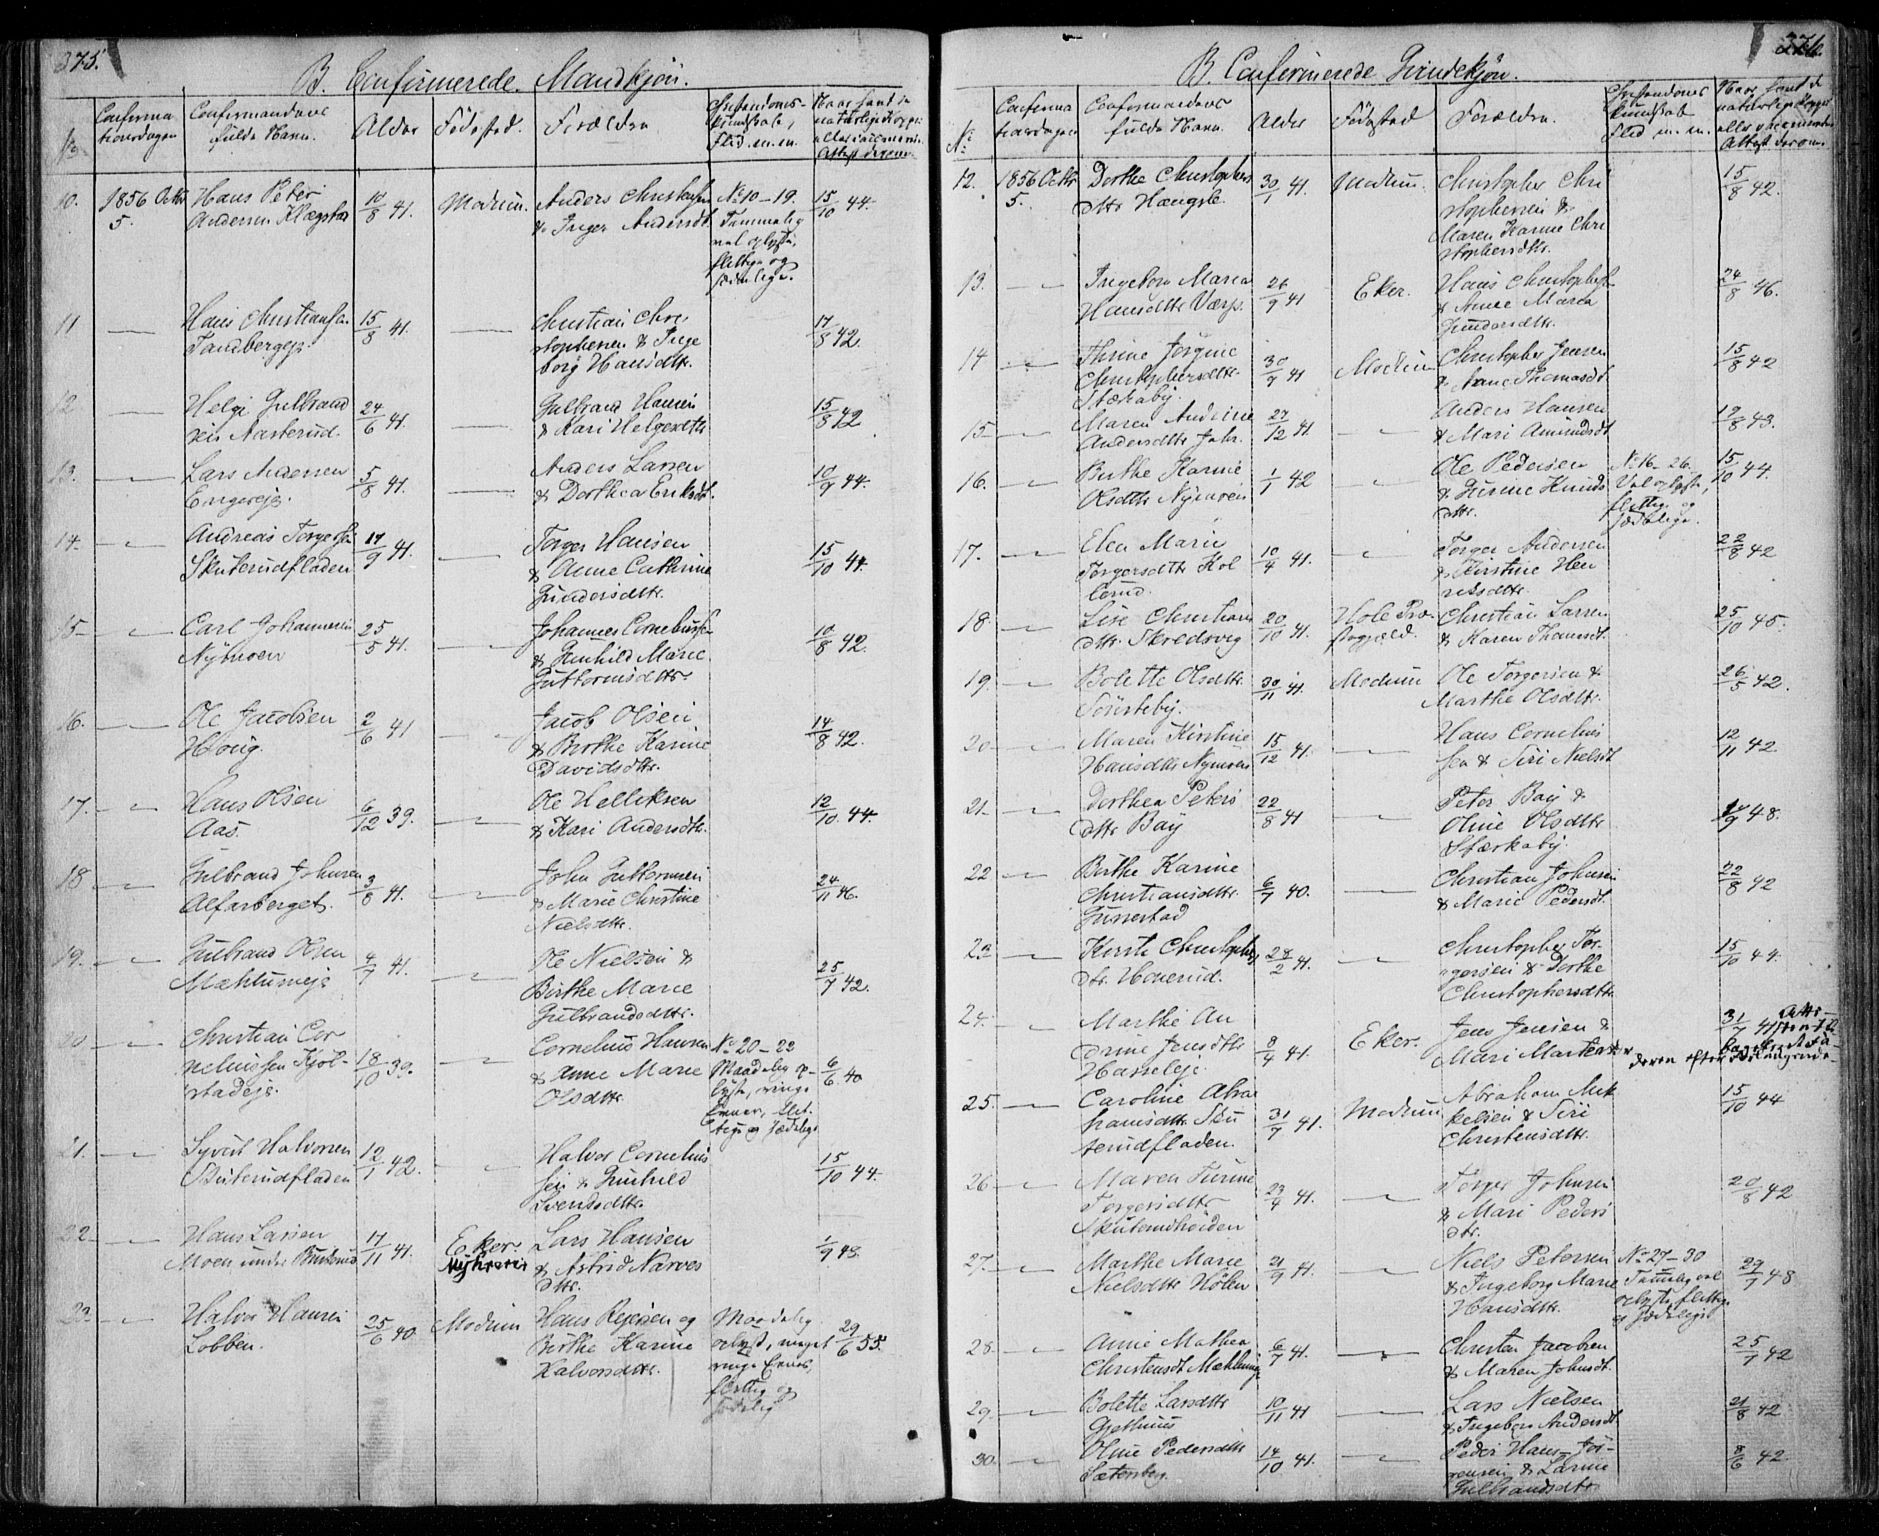 375.
B. Confirmerede. Mandkjøn.
No
Confirma
tionsdagen
Confirmandens
fulde Navn.
Alder
Fødested.
Forældre
Christendoms-
kundskab,
Flid m. m.
10.
1856 Octbr
5.
Hans Peter
Andersen
10/8 41.
Modum.
Anders Christensen
& Inger Andersdt.
No 10-19.
Temmelig
vel oplyste,
flittige og
sædelige.
15/10 44.
11
Hans Christiansen
Sandbergejr.
15/8 41.
Christian Chri
stophersen & Inge
borg Hansdttr.
17/8 42.
12
Helge Gulbrand
sen Aasterud.
24/6 41.
Gulbrand Hansen
& Kari Helgesdttr
15/8 42
13.
Lars Andersen
Engerejr.
5/8 41.
Anders Larsen
& Dorthea Eriksdt.
10/9 44.
14.
Andreas Torgersen
Skuterudfladen
17/9 41.
Torger Hansen
& Anne Cathrine
Gundersdttr.
15/10 44.
15
Carl Johannesen
Nymoen
25/5 41.
Johannes Corneliussen
& Gunhild Marie
Guttormsdttr.
10/8 42.
16.
Ole Jacobsen
Houg.
2/6 41
Jacob Olsen
& Berthe Karine
Davidsdttr.
14/8 42.
17.
Hans Olsen
Aas
6/12 39.
Ole Helliksen
& Kari Andersdttr.
12/10 44.
18
Gulbrand Johnsen
Alfarberget.
3/8 41.
John Guttormsen
& Marie Christine
Nielsdttr.
24/11 46.
19.
Gulbrand Olsen
Mæhlumejr
4/7 41.
Ole Nielsen &
Birthe Marie
Gulbrandsdttr.
25/7 42.
20
Christian Cor
neliussen Kjøl
stadejr.
18/10 39.
Cornelius Hansen
& Anne Marie
Olsdttr.
No 20-22
Maadelig op-
lyste, ringe
Evner, flit-
tige og sædelige
6/6 40
21.
Syvert Halvorsen
Skuterudfladen
12/1 42.
Halvor Cornelius
sen & Gunhild
Svensdttr.
15/10 44.
22
Hans Larsen
Moen under
17/11 41.
Eker.
Lars Hansen
& Astrid Narves
dttr.
1/9 43.
23.
Halvor Hansen
Lobben.
25/6 40.
Modum
Hans Rejersen og
Birthe Karine
Halvorsdttr.
Maadelig
oplyst, meget
ringe Evner,
flittig og
sædelig
29/6 55.
376
B. Confirmerede Qvindekjøn.
No
Confirma
tionsdagen
Confirmandens
fulde Navn.
Alder
Fødested
Forældre.
Christendoms
kundskab
Flid m. m.
12.
1856 Octbr
5.
Dorthe Christophers
dttr Hængsle.
30/1 41.
Modum.
Christopher Chri
stophersen &
Maren Karine Chri
stophersdttr.
15/8 42.
13.
Ingeborg Maria
Hansdttr
26/9 41
Eker.
Hans Christophersen
& Anne Maria
Gundersdttr.
24/8 46.
14
Thrine Jørgine
Christophersdttr.
Stærkeby.
30/9 41
Modum
Christopher Jensen
& Anne Thomasdt.
15/8 42
15
Maren Andrine
Andersdttr
27/12 41
Anders Hansen
& Mari Amundsdt
12/8 43.
16.
Berthe Karine
Olsdttr Nymoen
1/1 42
Ole Pedersen
& Gurine Knuds
dttr.
No 16-26.
Vel oplyste,
flittige og
sædelige.
15/10 44.
17.
Elen Marie
Torgersdttr Kol
lerud.
10/4 41.
Torger Andersen
& Kirstine Hen
riksdttr.
22/8 42
18.
Lise Christians
dttr Skredsvig
20/10 41.
Hole Præ-
stegjeld.
Christian Larsen
& Karen Thomsdt
25/10 45.
19.
Bolette Olsdttr
30/11 41.
Modum
Ole Torgersen &
Marthe Olsdttr.
26/5 42.
20
Maren Kirstine
Hansdttr Nymoen
15/12 41.
Hans Cornelius
sen & Siri Nielsdt
12/11 42.
21.
Dorthea Peters
dttr Bay
22/8 41
Peter Bay &
Oline Olsdttr
Stærkeby.
48.
22
Birthe Karine
Christiansdttr.
6/7 40.
Christian Johnsen
& Marie Pedersdt.
22/8 42
23
Kirsti Christophers
dtr. Honerud.
28/2 41.
Christopher Tor-
gersen & Dorthe
Christophersdttr
15/10 44.
24.
Marthe An
drine Jensdttr
8/4 41.
Eker.
Jens Jensen &
Mari
31/7
25.
Caroline Abra
hamsdttr. Sku
terudfladen.
31/7 41.
Modum
Abraham Mik
kelsen & Siri
Christensdttr.
15/10 44
26
Maren Turine
Torgersdttr
Skuterudheiden
23/4 41.
Torger Johnsen
& Mari Peders
dtr.
20/8 42
27.
Marthe Marie
Nielsdttr Hølen
21/9 41.
Niels Petersen
& Ingeborg Marie
Hansdttr.
No 27-30
Temmelig vel
oplyste, flittige
og sædelige
29/7 48
28.
Anne Mathea
Christensdt Mæhlumejr
6/7 41.
Christen Jacobsen
& Maren Johnsdt.
25/7 42
29.
Bolette Larsdttr
Gjethuus
10/11 41
Lars Nielsen
& Ingeborg Andersdt
21/8 42
30.
Oline Pedersdttr
Sætersberg.
14/10 41.
Peder Hans
& Larine
Gulbrandsdttr
8/6 42